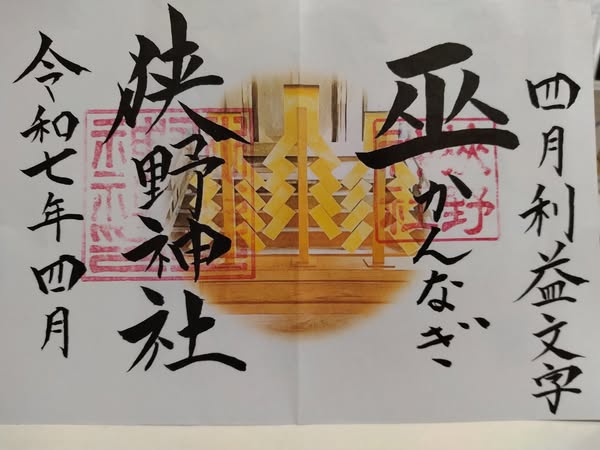 四月利益文字
巫かんなぎ
狭野神社
令和七年四月
狭野